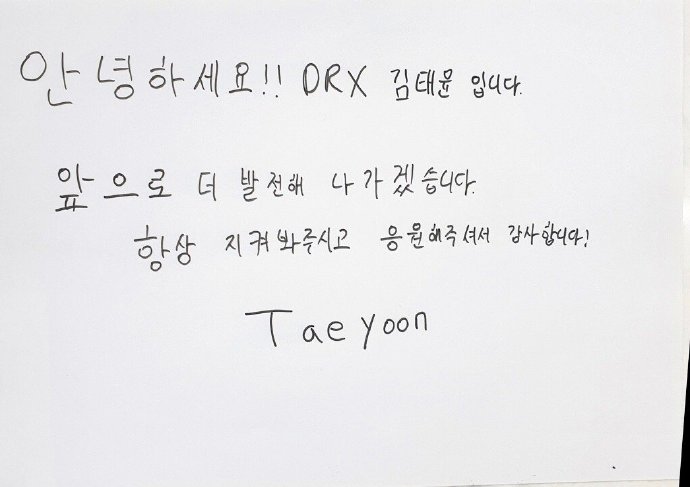 안녕하세요!! DRX 김태윤 입니다.
앞으로 더 발전해 나가겠습니다.
항상 지켜봐주시고 응원해주셔서 감사합니다!
Taeyoon